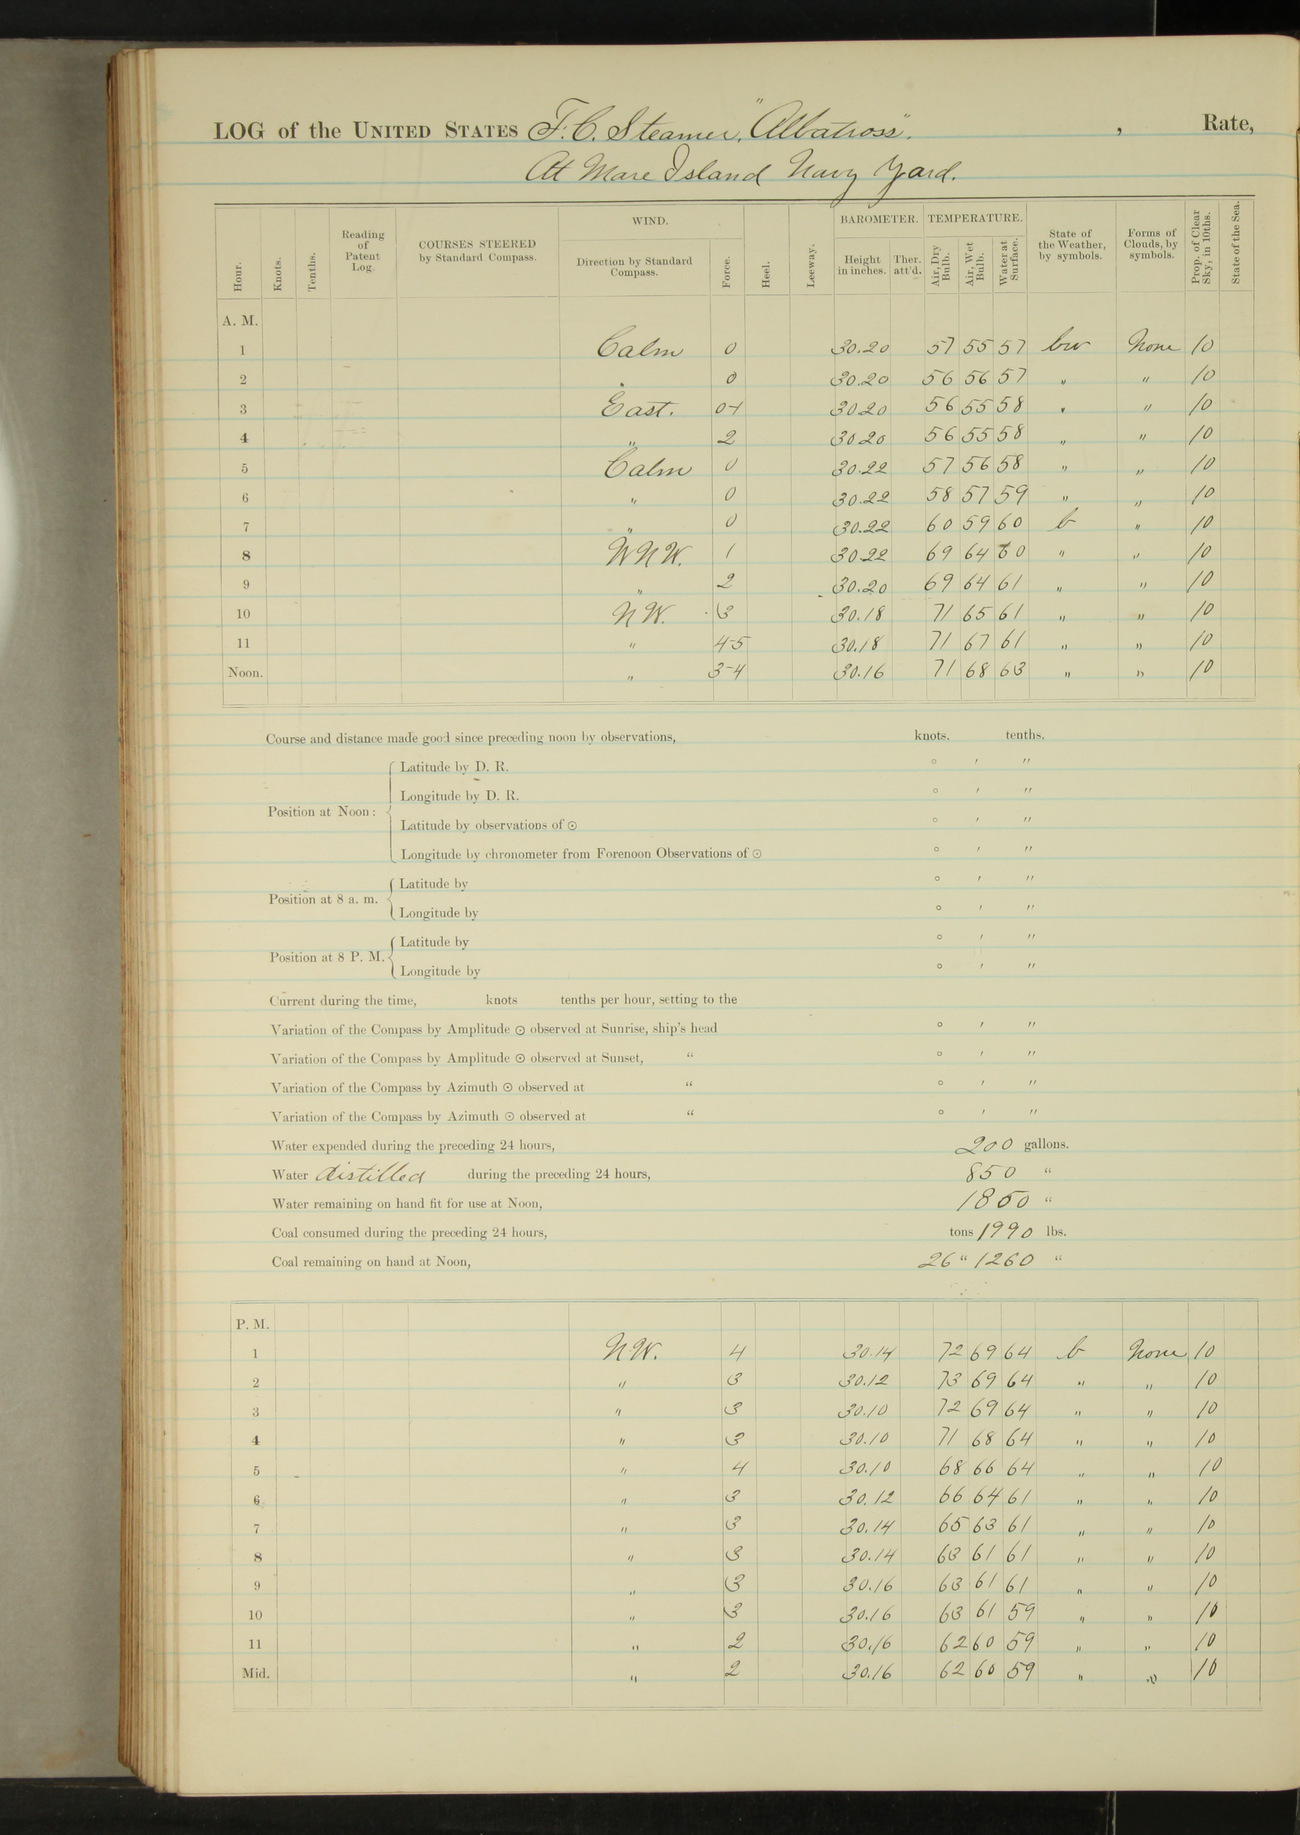 LOG of the UNITED STATES F.C. Steamer, "Albatross". , Rate,
At Mare Island Navy Yard.
Hour. Knots. Tenths. Reading of Patent Log. COURSES STEERED by Standard Compass. WIND. Direction by Standard Compass. Force. Heel. Leeway. BAROMETER. Height in inches. Ther. att'd. TEMPERATURE. Air, Dry Bulb. Air, Wet Bulb. Water at Surface. State of the Weather, by symbols. Forms of Clouds, by symbols. Prop. of Clear Sky, in 10ths. State of the Sea.
A. M.
1 Calm 0 30.20 57 55 57 bw None 10
2 " 0 30.20 56 56 57 " " 10
3 East. 0-1 30.20 56 55 58 " " 10
4 " 2 30.20 56 55 58 " " 10
5 Calm 0 30.22 57 56 58 " " 10
6 " 0 30.22 58 57 59 " " 10
7 " 0 30.22 60 59 60 b " 10
8 WNW. 1 30.22 69 64 60 " " 10
9 " 2 30.20 69 64 61 " " 10
10 NW. 3 30.18 71 65 61 " " 10
11 " 4-5 30.18 71 67 61 " " 10
Noon. " 3-4 30.16 71 68 63 " " 10
Course and distance made good since preceding noon by observations, knots. tenths.
Position at Noon: Latitude by D. R. ° ′ ″
Longitude by D. R. ° ′ ″
Latitude by observations of ☉ ° ′ ″
Longitude by chronometer from Forenoon Observations of ☉ ° ′ ″
Position at 8 a. m. Latitude by ° ′ ″
Longitude by ° ′ ″
Position at 8 P. M. Latitude by ° ′ ″
Longitude by ° ′ ″
Current during the time, knots tenths per hour, setting to the
Variation of the Compass by Amplitude ☉ observed at Sunrise, ship's head ° ′ ″
Variation of the Compass by Amplitude ☉ observed at Sunset, “ ° ′ ″
Variation of the Compass by Azimuth ☉ observed at “ ° ′ ″
Variation of the Compass by Azimuth ☉ observed at “ ° ′ ″
Water expended during the preceding 24 hours, 200 gallons.
Water distilled during the preceding 24 hours, 850 “
Water remaining on hand fit for use at Noon, 1850 “
Coal consumed during the preceding 24 hours, tons 1990 lbs.
Coal remaining on hand at Noon, 26 “ 1260 “
P. M.
1 NW. 4 30.14 72 69 64 b None 10
2 " 3 30.12 73 69 64 " " 10
3 " 3 30.10 72 69 64 " " 10
4 " 3 30.10 71 68 64 " " 10
5 " 4 30.10 68 66 64 " " 10
6 " 3 30.12 66 64 61 " " 10
7 " 3 30.14 65 63 61 " " 10
8 " 3 30.14 63 61 61 " " 10
9 " 3 30.16 63 61 61 " " 10
10 " 3 30.16 63 61 59 " " 10
11 " 2 30.16 62 60 59 " " 10
Mid. " 2 30.16 62 60 59 " " 10